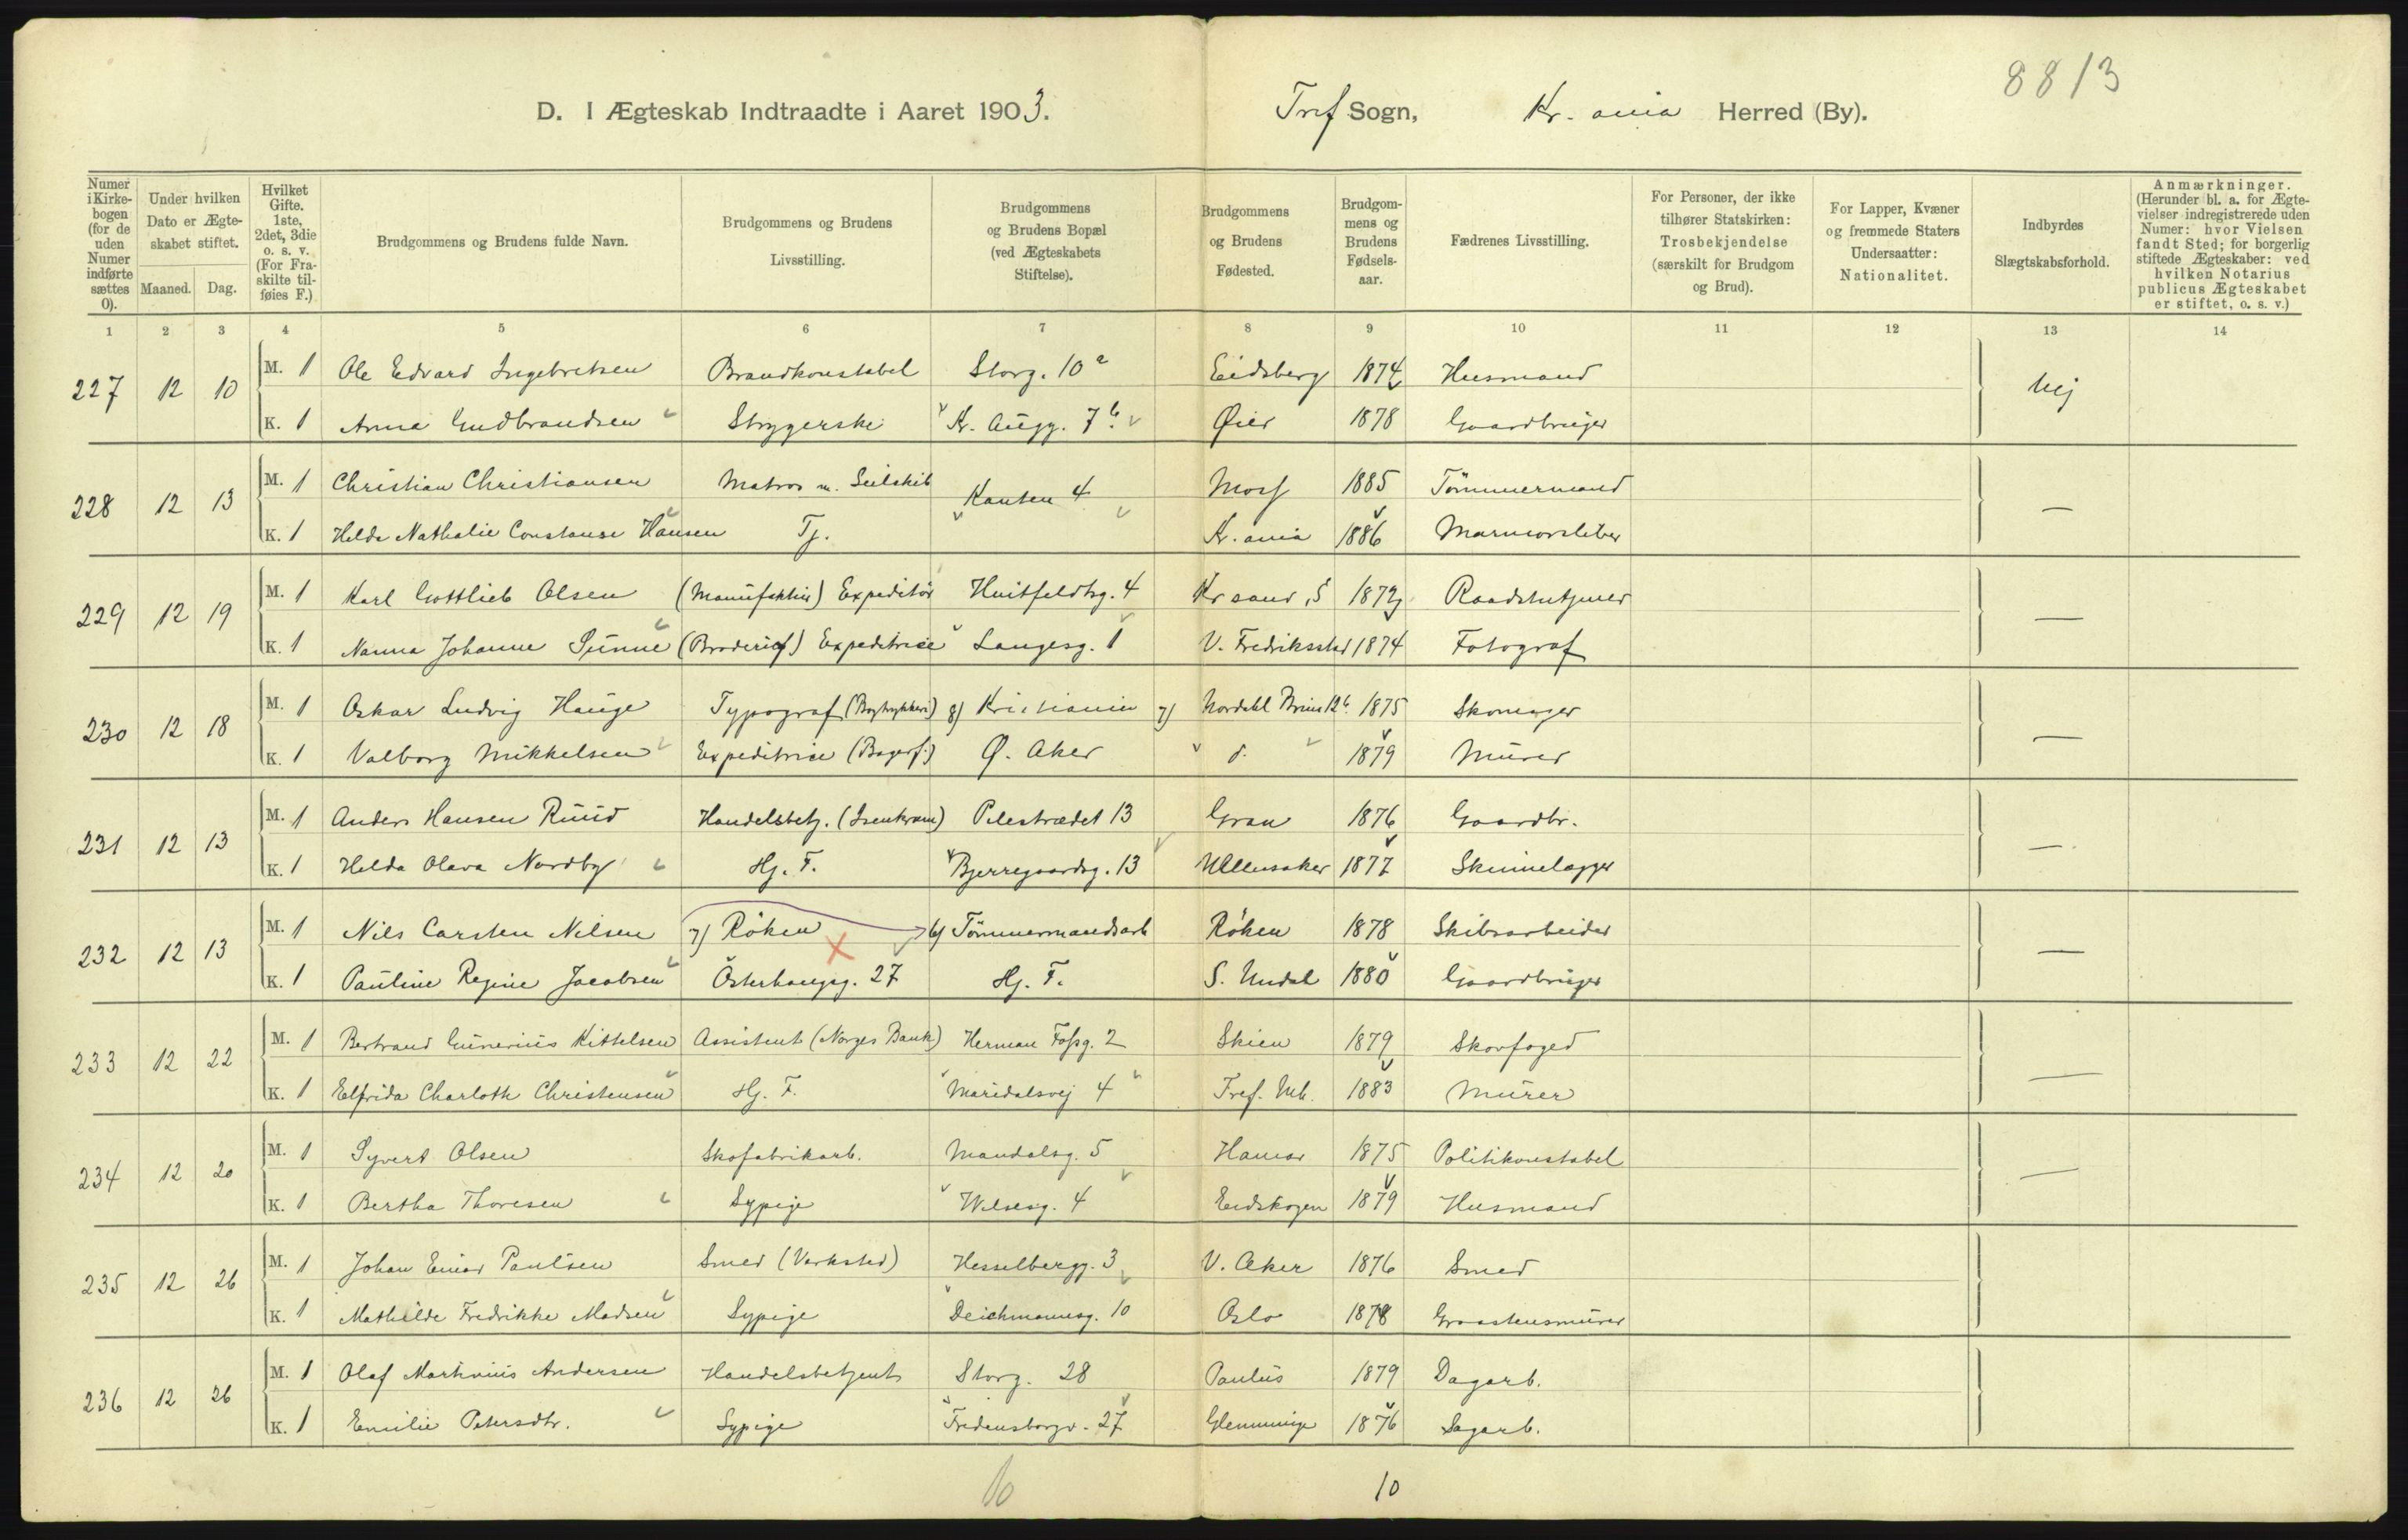 8813
D. I Ægteskab Indtraadte i Aaret 1903. Tref Sogn, Kr. ania Herred (By).
Numer i Kirkebogen (for de uden Numer indførte sættes 0). Under hvilken Dato er Ægteskabet stiftet. Maaned. Dag. Hvilket Gifte. 1ste, 2det, 3die o. s. v. (For Fraskilte tilføies F.) Brudgommens og Brudens fulde Navn. Brudgommens og Brudens Livsstilling. Brudgommens og Brudens Bopæl (ved Ægteskabets Stiftelse). Brudgommens og Brudens Fødested. Brudgommens og Brudens Fødselsaar. Fædrenes Livsstilling. For Personer, der ikke tilhører Statskirken: Trosbekjendelse (særskilt for Brudgom og Brud). For Lapper, Kvæner og fremmede Staters Undersaatter: Nationalitet. Indbyrdes Slægtskabsforhold. Anmærkninger. (Herunder bl. a. for Ægtevielser indregistrerede uden Numer: hvor Vielsen fandt Sted; for borgerlig stiftede Ægteskaber: ved hvilken Notarius publicus Ægteskabet er stiftet, o. s. v.)
1 2 3 4 5 6 7 8 9 10 11 12 13 14
227 12 10 M. 1 Ole Edvard Ingebretsen Brandkonstabel Storg. 10 a Eidsberg 1874 Husmand Nej
K. 1 Anna Gudbrandsen Strygerske Kr. Augg. 7 b. Øier 1878 Gaardbruger
228 12 13 M. 1 Christian Christiansen Matros m. Seilskib Kanten 4 Moss 1885 Tömmermand —
K. 1 Helda Nathalie Constanse Hansen Tj. Kr. ania 1886 Marmorsliber
229 12 19 M. 1 Karl Gottlieb Olsen (Manufaktur) Expeditör Huitfeldtsg. 4 Kr sand, S 1872 Raadstutjener —
K. 1 Nanna Johanne Sunne (Broderif) Expeditrice Langesg. 1 V. Fredriksstad 1874 Fotograf
230 12 18 M. 1 Oskar Ludvig Hauge Typograf (Bogtrykkeri) 8) Kristiania 7) Nordahl Bruns 12 b. 1875 Skomager —
K. 1 Valborg Mikkelsen Expeditrice (Bagerf.) Ø. Aker " d. " 1879 Murer
231 12 13 M. 1 Anders Hansen Ruud Handelsbetj. (Isenkram) Pilestrædet 13 Gran 1876 Gaardbr. —
K. 1 Helda Olava Nordby Hj. F. Bjerregaardsg. 13 Ullensaker 1877 Skindelægger
232 12 13 M. 1 Nils Carsten Nilsen 7) Röken 6) Tömmermandsarb Röken 1878 Skibsarbeider —
K. 1 Pauline Regine Jacobsen Österhausg. 27 Hj. F. S. Undal 1880 Gaardbruger
233 12 22 M. 1 Bertrand Gunerius Kittelsen Assistent (Norges Bank) Herman Fossg. 2 Skien 1879 Skovfoged —
K. 1 Elfrida Charloth Christensen Hj. F. Maridalsvej 4 Tref. Mk. 1883 Murer
234 12 20 M. 1 Syvert Olsen Skofabrikarb. Mandalsg. 5 Hamar 1875 Politikonstabel —
K. 1 Bertha Thoresen Sypige Wilsesg. 4 Eidskogen 1879 Husmand
235 12 26 M. 1 Johan Einar Paulsen Smed (Verksted) Hesselbergg. 3 V. Aker 1876 Smed
K. 1 Mathilde Fredrikke Madsen Sypige Deichmannsg. 10 Oslo 1878 Graastensmurer
236 12 26 M. 1 Olaf Martinius Andersen Handelsbetjent Storg. 28 Paulus 1879 Dagarb.
K. 1 Emilie Petersdtr. Sypige Fredensborgv. 27 Glemminge 1876 Sagarb.
10 10